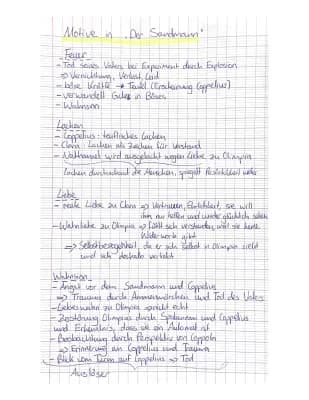 Motive in "Der Sandmann"
Feuer
- Tod seines Vaters bei Experiment durch Explosion
⇒ Vernichtung, Verlust, Leid
- böse Kräfte → Teufel (Erscheinung Coppelius)
- verwandelt Gutes in Böses
- Wahnsinn
Lachen
- Coppelius: teuflisches Lachen
- Clara: Lachen als Zeichen für Verstand
- Nathanael wird ausgelacht wegen Liebe zu Olimpia
Lachen durchschaut die Menschen, spiegelt Persönlichkeit wider
Liebe
- reale Liebe zu Clara ⇒ Vertrauen, Ehrlichkeit, sie will
ihm nur helfen und wieder glücklich sehen
- Wahnliebe zu Olimpia ⇒ fühlt sich verstanden, weil sie keine
Widerworte gibt
⇒ Selbstbezogenheit, da er sich selbst in Olimpia sieht
und sich deshalb verliebt
Wahnsinn
- Angst vor dem Sandmann und Coppelius
⇒ Trauma durch Ammenmärchen und Tod des Vaters
- Liebeswahn zu Olimpia spricht echt
- Zerstörung Olimpias durch Spalanzani und Coppelius
und Erkenntnis, dass sie ein Automat ist
- Beobachtung durch Perspektiv von Coppola
⇒ Erinnerung an Coppelius und Trauma
- Blick vom Turm auf Coppelius ⇒ Tod
Auslöser